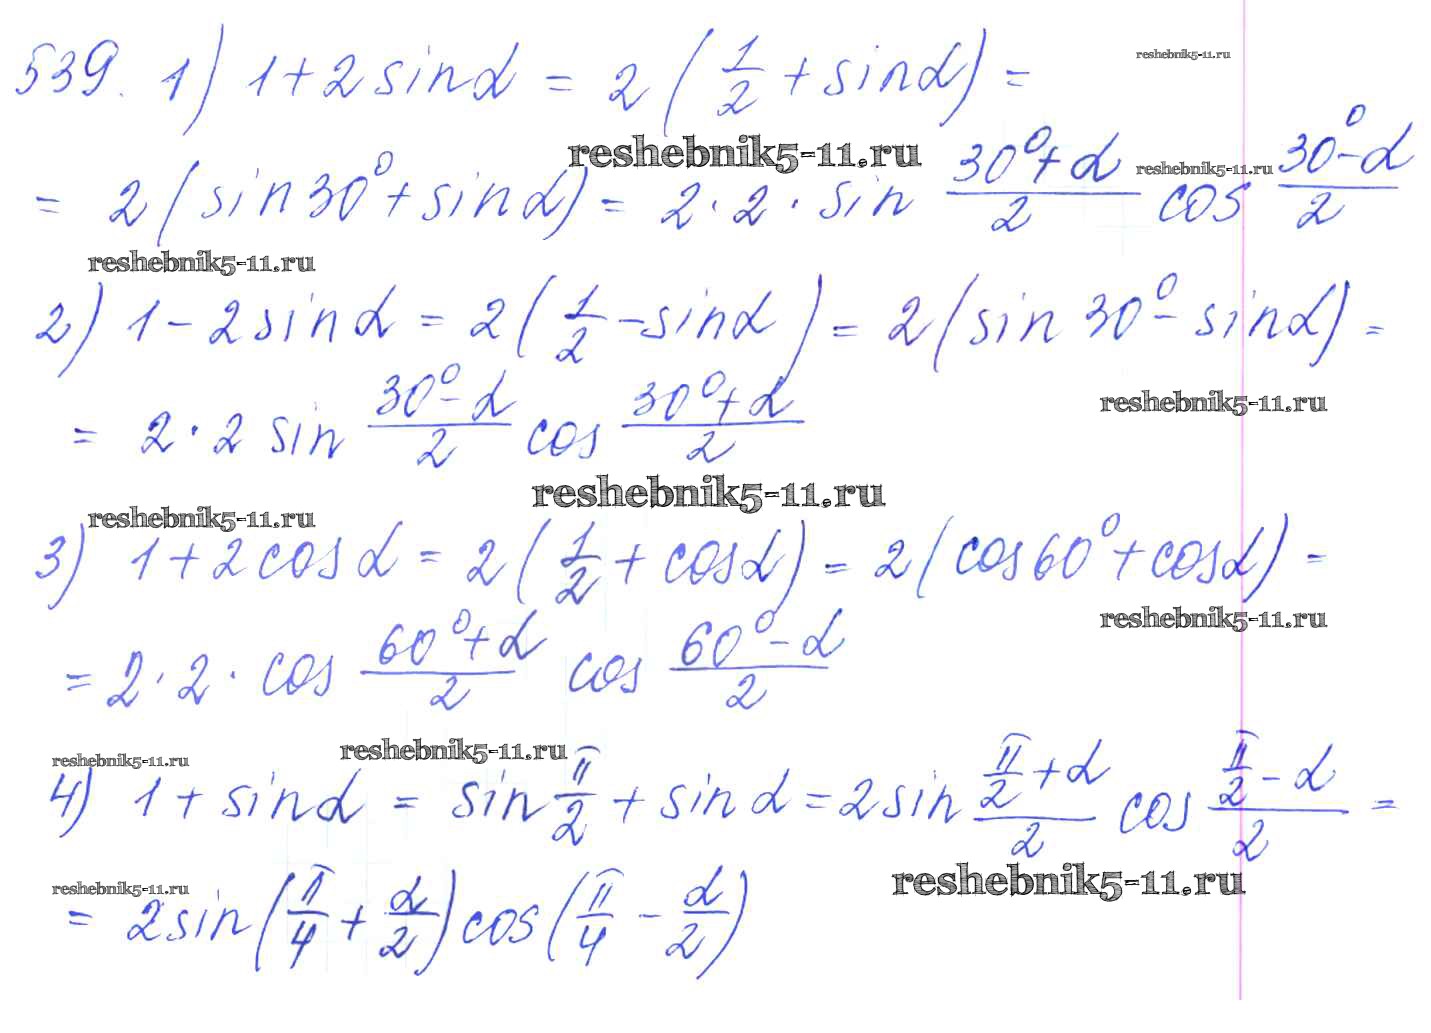 539. 1) 1 + 2 sin α = 2 (1/2 + sin α) =
reshebnik5-11.ru
reshebnik5-11.ru
reshebnik5-11.ru
= 2 (sin 30° + sin α) = 2 · 2 · sin (30° + α)/2 cos (30° - α)/2
reshebnik5-11.ru
2) 1 - 2 sin α = 2 (1/2 - sin α) = 2 (sin 30° - sin α) =
reshebnik5-11.ru
= 2 · 2 sin (30° - α)/2 cos (30° + α)/2
reshebnik5-11.ru
reshebnik5-11.ru
3) 1 + 2 cos α = 2 (1/2 + cos α) = 2 (cos 60° + cos α) =
reshebnik5-11.ru
= 2 · 2 · cos (60° + α)/2 cos (60° - α)/2
reshebnik5-11.ru
reshebnik5-11.ru
4) 1 + sin α = sin π/2 + sin α = 2 sin (π/2 + α)/2 cos (π/2 - α)/2 =
reshebnik5-11.ru
reshebnik5-11.ru
= 2 sin (π/4 + α/2) cos (π/4 - α/2)